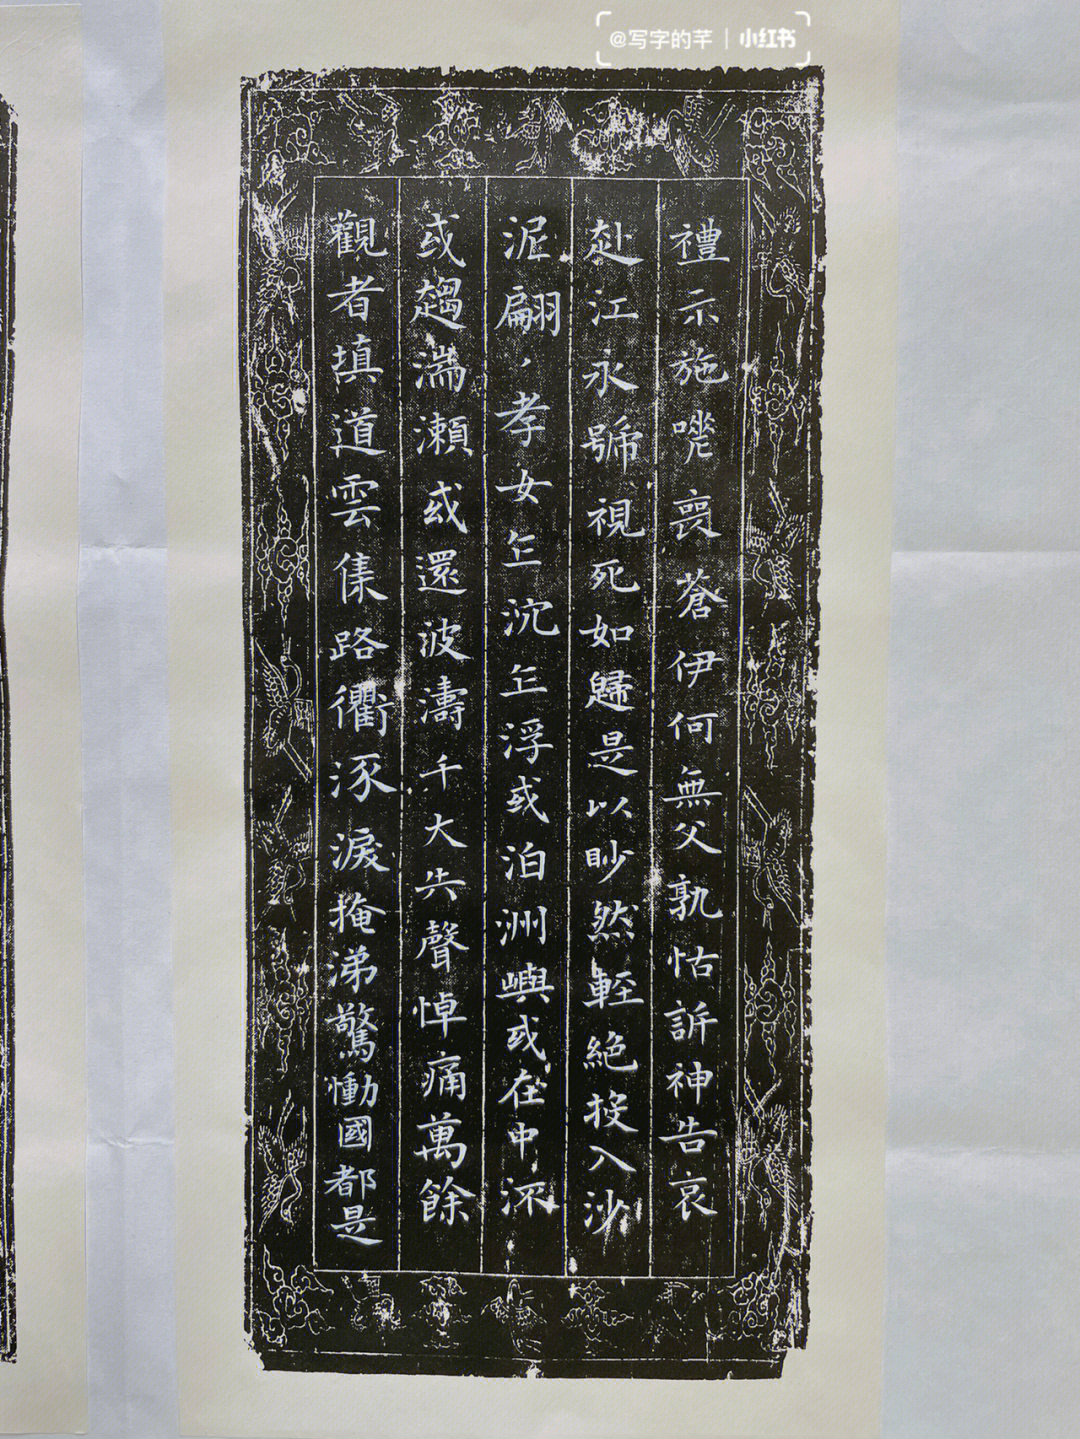 @写字的芊 | 小红书
禮示施嘥喪蒼伊何無父孰怙訴神告哀
赴江永號視死如歸是以眇然輕絕投入沙
泥翩丶孝女乍沉乍浮或泊洲嶼或在中流
或趨湍瀨或還波濤千夫失聲悼痛萬餘
觀者填道雲集路衢泳淚掩涕驚慟國都是